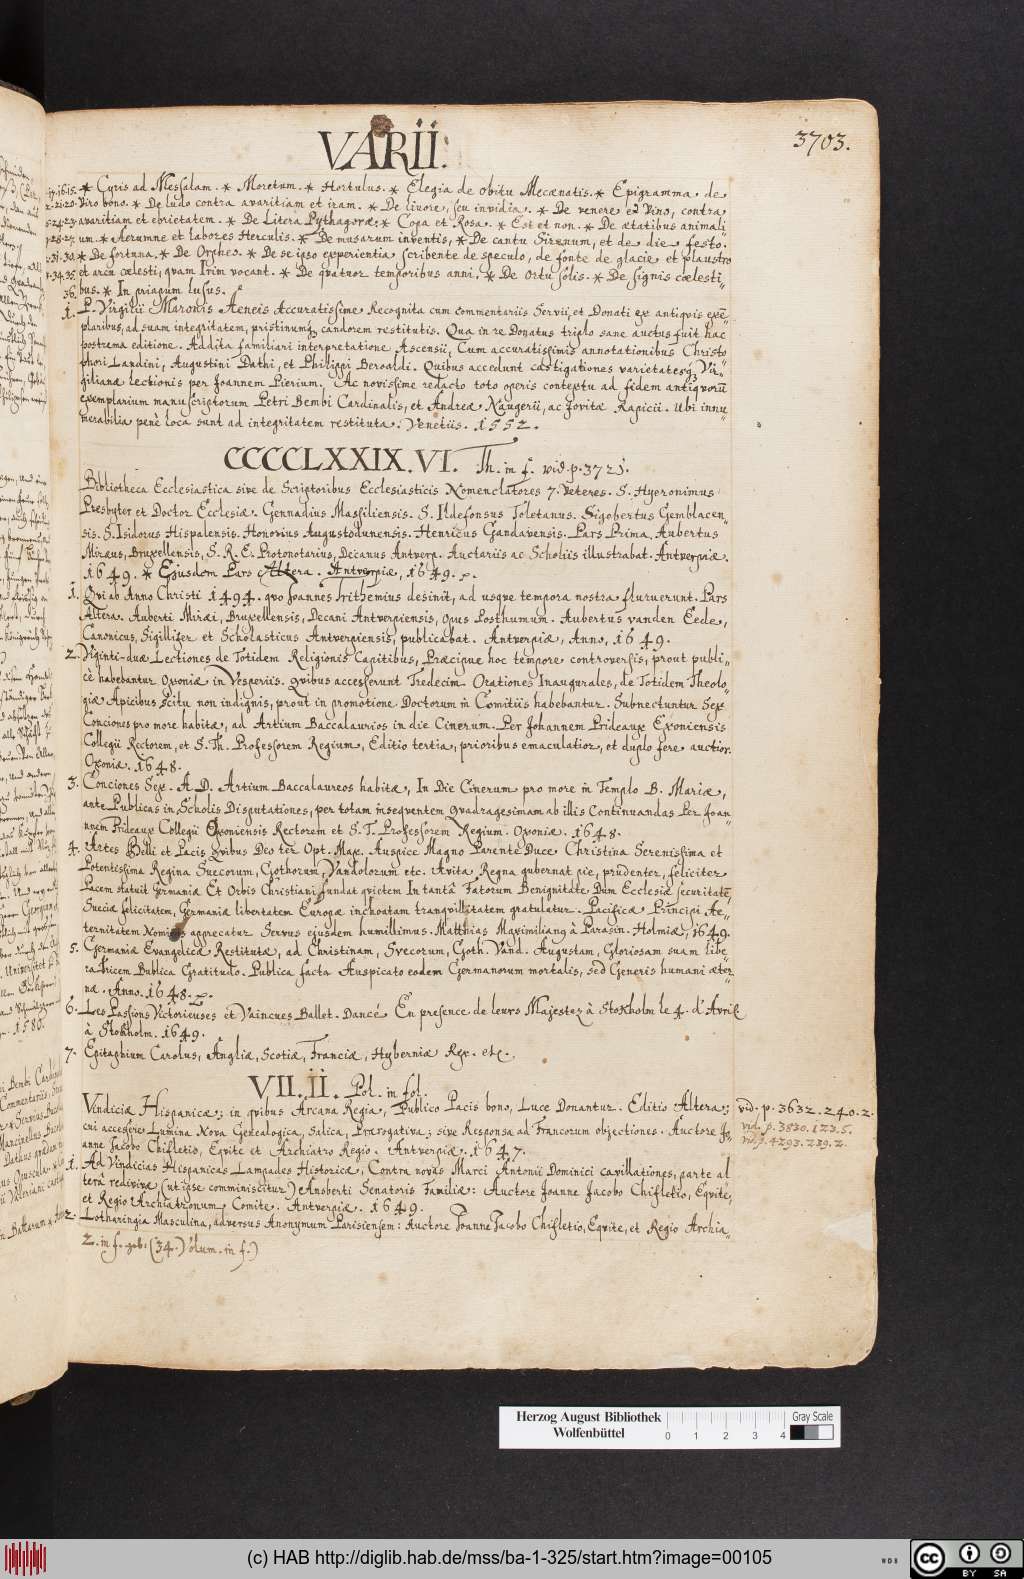 VARII.
3703.
* Cyris ad Messalam. * Moretum. * Hortulus. * Elegia de obitu Mecænatis. * Epigramma de
Viro bono. * De ludo contra avaritiam et iram. * De livore, seu invidia. * De venere et Vino, contra
avaritiam et ebrietatem. * De Litera Pythagoræ. * Copa et Rosa. * Est et non. * De ætatibus animali
um. * Aerumne et labores Herculis. * De musarum inventis, * De cantu Sirenum, et de die festo.
* De fortuna. * De Orpheo. * De se ipso experientia scribente de speculo, de fonte de glacie et plaustro
et arcu cœlesti, qvam Irim vocant. * De qvatuor temporibus anni. * De ortu solis. * De signis cœlesti,,
36. bus. * In priapum lusus.
1. P. Virgilii Maronis Aeneis Accuratissime Recognita cum commentariis Servii, et Donati ex antiqvis exē
plaribus, ad suam integritatem, pristinumq candorem restitutis. Qua in re Donatus triplo sane auctus fuit hac
postrema editione. Addita familiari interpretatione Ascensii, Cum accuratissimis annotationibus Christo
phori Landini, Augustini Dathi, et Philippi Beroaldi. Quibus accedunt castigationes varietatesq Vir,,
gilianæ lectionis per Joannem Pierium. Ac novissime redacto toto operis contextu ad fidem antiqvorū
exemplarium manuscriptorum Petri Bembi Cardinalis, et Andreæ Naugerii, ac Jovitæ Rapicii. Ubi innu
merabilia penè loca sunt ad integritatem restituta. Venetiis. 1552.
CCCCCLXXIX.VI. Th. in f. vid. p. 3721.
Bibliotheca Ecclesiastica sive de Scriptoribus Ecclesiasticis Nomenclatores 7. Veteres. S. Hyeronimus
Presbyter et Doctor Ecclesiæ. Gennadius Massiliensis. S. Ildefonsus Toletanus. Sigobertus Gemblacen,,
sis. S. Isidorus Hispalensis. Honorius Augustodunensis. Henricus Gandavensis. Pars Prima. Aubertus
Miræus, Bruxellensis, S. R. E. Protonotarius, Decanus Antverp. Auctariis ac Scholiis illustrabat. Antverpiæ.
1649. * Ejusdem Pars Altera. Antverpiæ, 1649.
1. Qvi ab Anno Christi 1494. qvo Joannes Trithemius desinit, ad usqve tempora nostra floruerunt. Pars
Altera. Auberti Miræi, Bruxellensis, Decani Antverpiensis, Opus Posthumum. Aubertus vanden Eede,
Canonicus, Sigillifer et Scholasticus Antverpiensis, publicabat. Antverpiæ, Anno, 1649.
2. Viginti-duæ Lectiones de Totidem Religionis Capitibus, Præcipue hoc tempore controversis, prout publi,,
cè habebantur Oxoniæ in Vesperiis. Qvibus accesserunt Tredecim Orationes Inaugurales, de Totidem Theolo,,
giæ Apicibus scitu non indignis, prout in promotione Doctorum in Comitiis habebantur. Subnectuntur Sex
Conciones pro more habitæ, ad Artium Baccalaurios in die Cinerum. Per Johannem Prideaux Exoniensis
Collegii Rectorem, et S. Th. Professorem Regium, Editio tertia, prioribus emaculatior, et duplo fere auctior.
Oxoniæ. 1648.
3. Conciones Sex. A. D. Artium Baccalaureos habitæ, In Die Cinerum pro more in Templo B. Mariæ,
ante Publicas in Scholis Disputationes, per totam inseqventem Qvadragesimam ab illis Continuandas Per Joan,,
nnem Prideaux Collegii Oxoniensis Rectorem et S. T. Professorem Regium. Oxoniæ. 1648.
4. Artes Belli et Pacis Qvibus Deo ter Opt. Max. Auspice Magno Parente Duce Christina Serenissima et
Potentissima Regina Suecorum, Gothorum, Vandolorum etc. Avita Regna gubernat pie, prudenter, feliciter
Pacem statuit Germaniæ Et Orbis Christiani fundat qvietem In tantâ Fatorum Benignitate Dum Ecclesiæ securitatē,
Sueciæ felicitatem, Germaniæ libertatem Europæ inchoatam tranqvillitatem gratulatur. Pacificæ Principi Ae,,
ternitatem Nominis apprecatur Servus ejusdem humillimus. Matthias Maximiliany à Parasin. Holmiæ, 1649.
5. Germaniæ Evangelicæ Restitutæ, ad Christinam, Svecorum, Goth. Vand. Augustam, Gloriosam suam libe,,
ratricem Publica Gratitudo. Publica facta Auspicato eodem Germanorum mortalis, sed Generis humani æter
næ. Anno. 1648.
6. Les Passions Victorieuses et Vaincues Ballet. Dancé En presence de leurs Majestez à Stokholm le 4. d'Avril
à Stokholm. 1649.
7. Epitaphium Carolus, Angliæ, Scotiæ, Franciæ, Hyberniæ Rex. etc.
VII.II. Pol. in fol.
Vindiciæ Hispanicæ: in qvibus Arcana Regia, Publico Pacis bono, Luce Donantur. Editio Altera; vid. p. 3632. 240. 2.
cui accessere Lumina Nova Genealogica, Salica, Prærogativa; sive Responsa ad Francorum objectiones. Auctore Jo,, vid. p. 3830. 123. 5.
anne Jacobo Chifletio, Eqvite et Archiatro Regio. Antverpiæ. 1647. vid. p. 4293. 239. 2.
1. Ad Vindicias Hispanicas Lampades Historicæ, Contra novas Marci Antonii Dominici cavillationes, parte al
terâ redivivæ (ut ipse comminiscitur) Ansberti Senatoris Familiæ: Auctore Joanne Jacobo Chifletio, Eqvite,
et Regio Archiatronum Comite. Antverpiæ. 1649.
2. Lotharingia Masculina, adversus Anonymum Parisiensem: Auctore Joanne Jacobo Chifletio, Eqvite, et Regio Archia,,
2. in f. geb. (34.) Volum. in f.)
Herzog August Bibliothek
Wolfenbüttel
0 1 2 3 4
Gray Scale
(c) HAB http://diglib.hab.de/mss/ba-1-325/start.htm?image=00105
WDB
cc BY SA